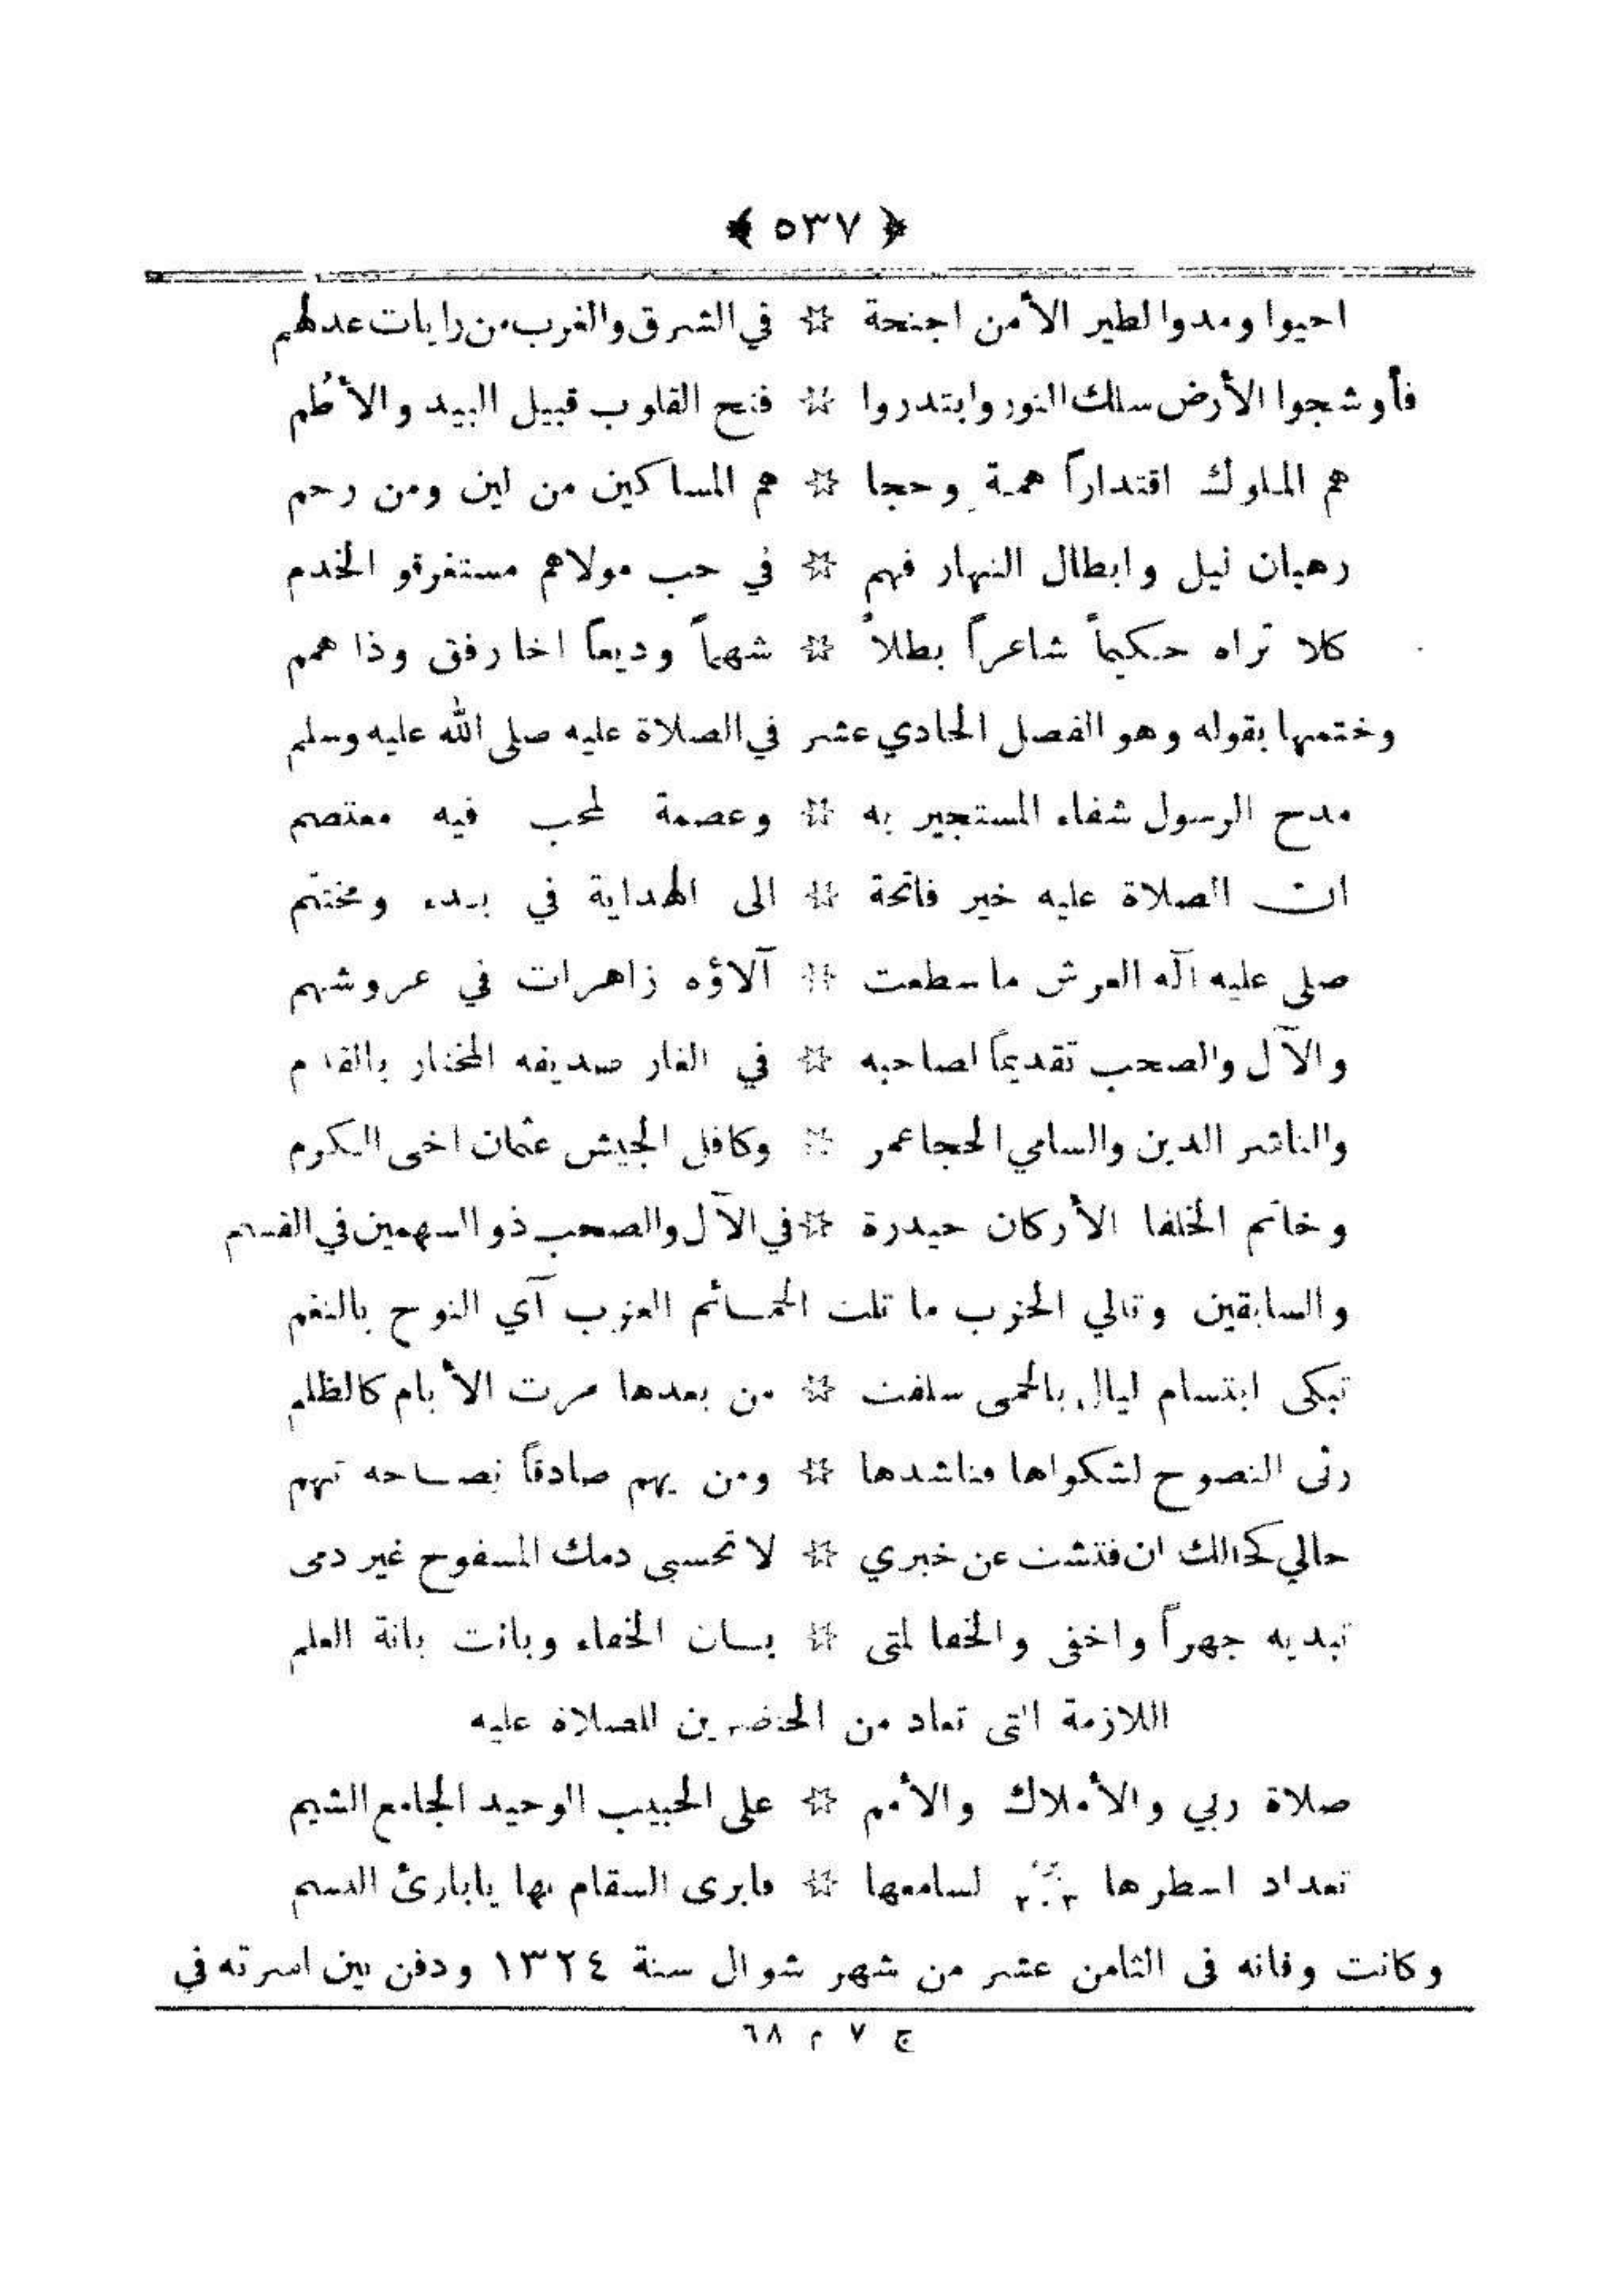 ﴿ ٥٣٧ ﴾
احيوا ومدوا لطير الأمن اجنحة ☆ في الشرق والغرب من رايات عدلهم
فأوشجوا الأرض سلك النور وابتدروا ☆ فتح القلوب قبيل البيد والأطُم
هم الملوك اقتداراً همة وحجا ☆ هم المساكين من لين ومن رحم
رهبان ليل وابطال النهار فهم ☆ في حب مولاهم مستغرقو الخدم
كلا تراه حكيماً شاعراً بطلاً ☆ شهماً وديعاً اخا رفق وذا همم
وختمها بقوله وهو الفصل الحادي عشر في الصلاة عليه صلى الله عليه وسلم
مدح الرسول شفاء المستجير به ☆ وعصمة لمحب فيه معتصم
ان الصلاة عليه خير فاتحة ☆ الى الهداية في بدء ومختتم
صلى عليه آله العرش ما سطعت ☆ آلاؤه زاهرات في عروشهم
والآل والصحب تقديماً لصاحبه ☆ في الغار صديقه المختار بالقدم
والناشر الدين والسامي الحجا عمر ☆ وكافل الجيش عثمان اخى الكرم
وخاتم الخلفا الأركان حيدرة ☆ في الآل والصحب ذو السهمين في القسم
والسابقين وتالي الحزب ما تلت الحمائم العزب آي النوح بالنغم
تبكى ابتسام ليال بالحمى سلفت ☆ من بعدها مرت الأيام كالظلم
رثى النصوح لشكواها فناشدها ☆ ومن يهم صادقاً نصاحه تهم
حالي كحالك ان فتشت عن خبري ☆ لا تحسبى دمك المسفوح غير دمى
تبديه جهراً واخفى والخفا لمتى ☆ بان الخفاء وبانت بانة العلم
اللازمة التى تعاد من الحاضرين للصلاة عليه
صلاة ربي والأملاك والأمم ☆ على الحبيب الوحيد الجامع الشيم
تعداد اسطرها ٢٠٣ لسامعها ☆ فابرى السقام بها يا بارئ النسم
وكانت وفاته فى الثامن عشر من شهر شوال سنة ١٣٢٤ ودفن بين اسرته في
ج ٧ م ٦٨